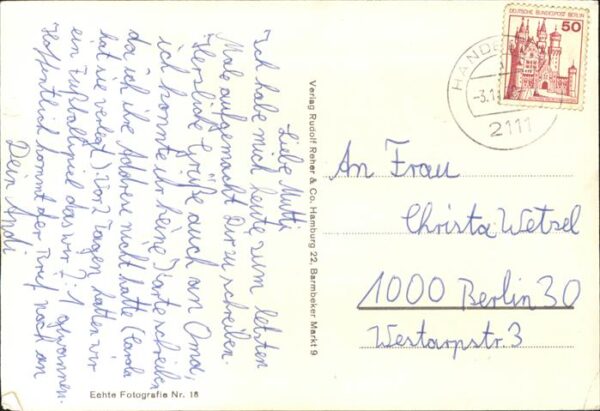 Liebe Mutti
Ich habe mich heute zum letzten
Male aufgemacht Dir zu schreiben.
Herzliche Grüße auch an Omi,
ich konnte ihr keine Karte schreiben
da ich ihre Addresse nicht hatte (Carola
hat sie verlegt). Vor 2 Tagen hatten wir
ein Fußballspiel das wir 7:1 gewannen.
Hoffentlich kommt der Brief noch an
Dein Andi
Echte Fotografie Nr. 18
Verlag Rudolf Reher & Co. Hamburg 22, Barmbeker Markt 9
DEUTSCHE BUNDESPOST BERLIN
50
HANDE
-3.1
2111
An Frau
Christa Wetzel
1000 Berlin 30
Westarpstr. 3